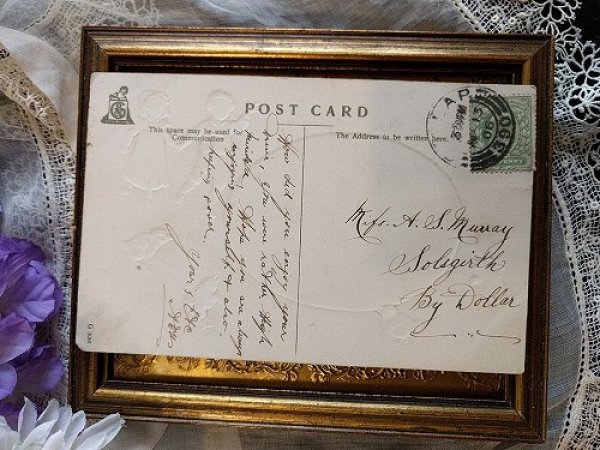 POST CARD
This space may be used for
Communication
The Address to be written here.
How did you enjoy your
you were rather High
Hope you are always
enjoying yourself & also
Yours
Miss A. S. Murray
Solsgirth
By Dollar
G 534